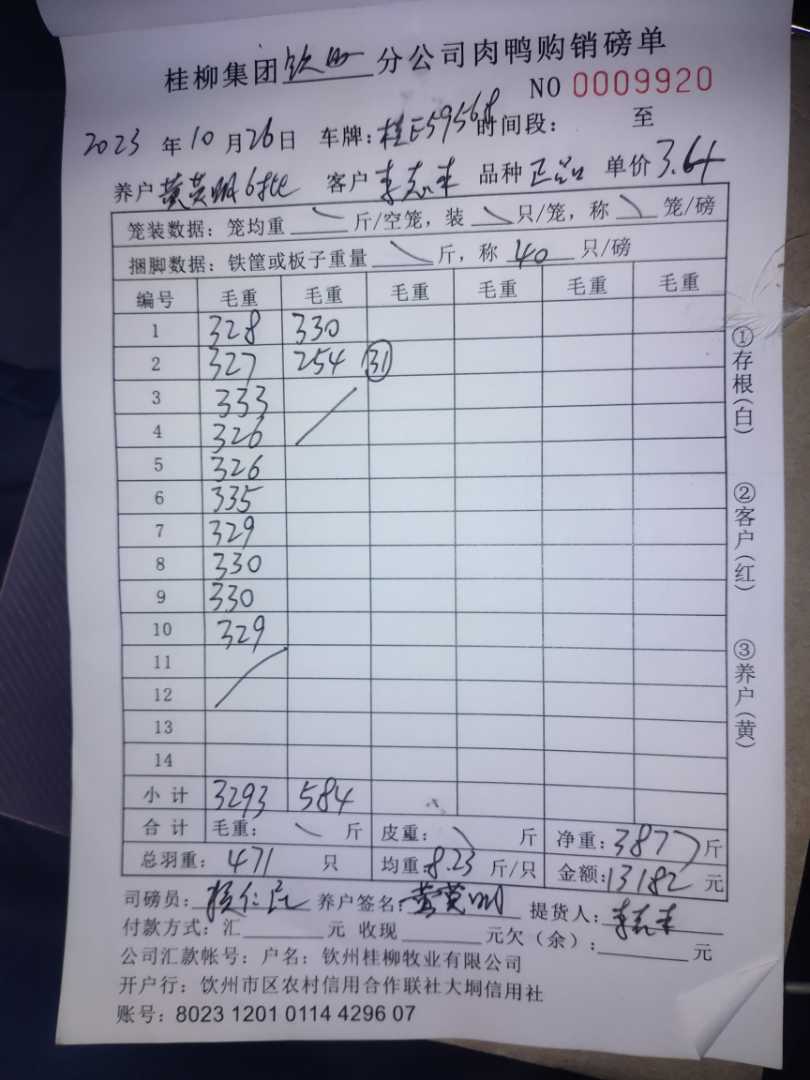 桂柳集团钦州分公司肉鸭购销磅单
NO 0009920
2023年10月26日 车牌:桂E59568 时间段: 至
养户黄英明6批 客户 李志丰 品种 正品 单价3.64
笼装数据:笼均重 斤/空笼,装 只/笼,称 笼/磅
捆脚数据:铁筐或板子重量 斤,称 40 只/磅
编号 毛重 毛重 毛重 毛重 毛重 毛重
1 328 330
2 327 254 31
3 333
4 326
5 326
6 335
7 329
8 330
9 330
10 329
11
12
13
14
小计 3293 584
合计 毛重: 斤 皮重: 斤 净重:3877斤
总羽重:471 只 均重:8.23 斤/只 金额:13182元
司磅员: 养户签名:黄英明 提货人:李志丰
付款方式:汇 元 收现 元欠(余): 元
公司汇款帐号:户名:钦州桂柳牧业有限公司
开户行:钦州市区农村信用合作联社大垌信用社
账号:8023 1201 0114 4296 07
①存根(白)
②客户(红)
③养户(黄)